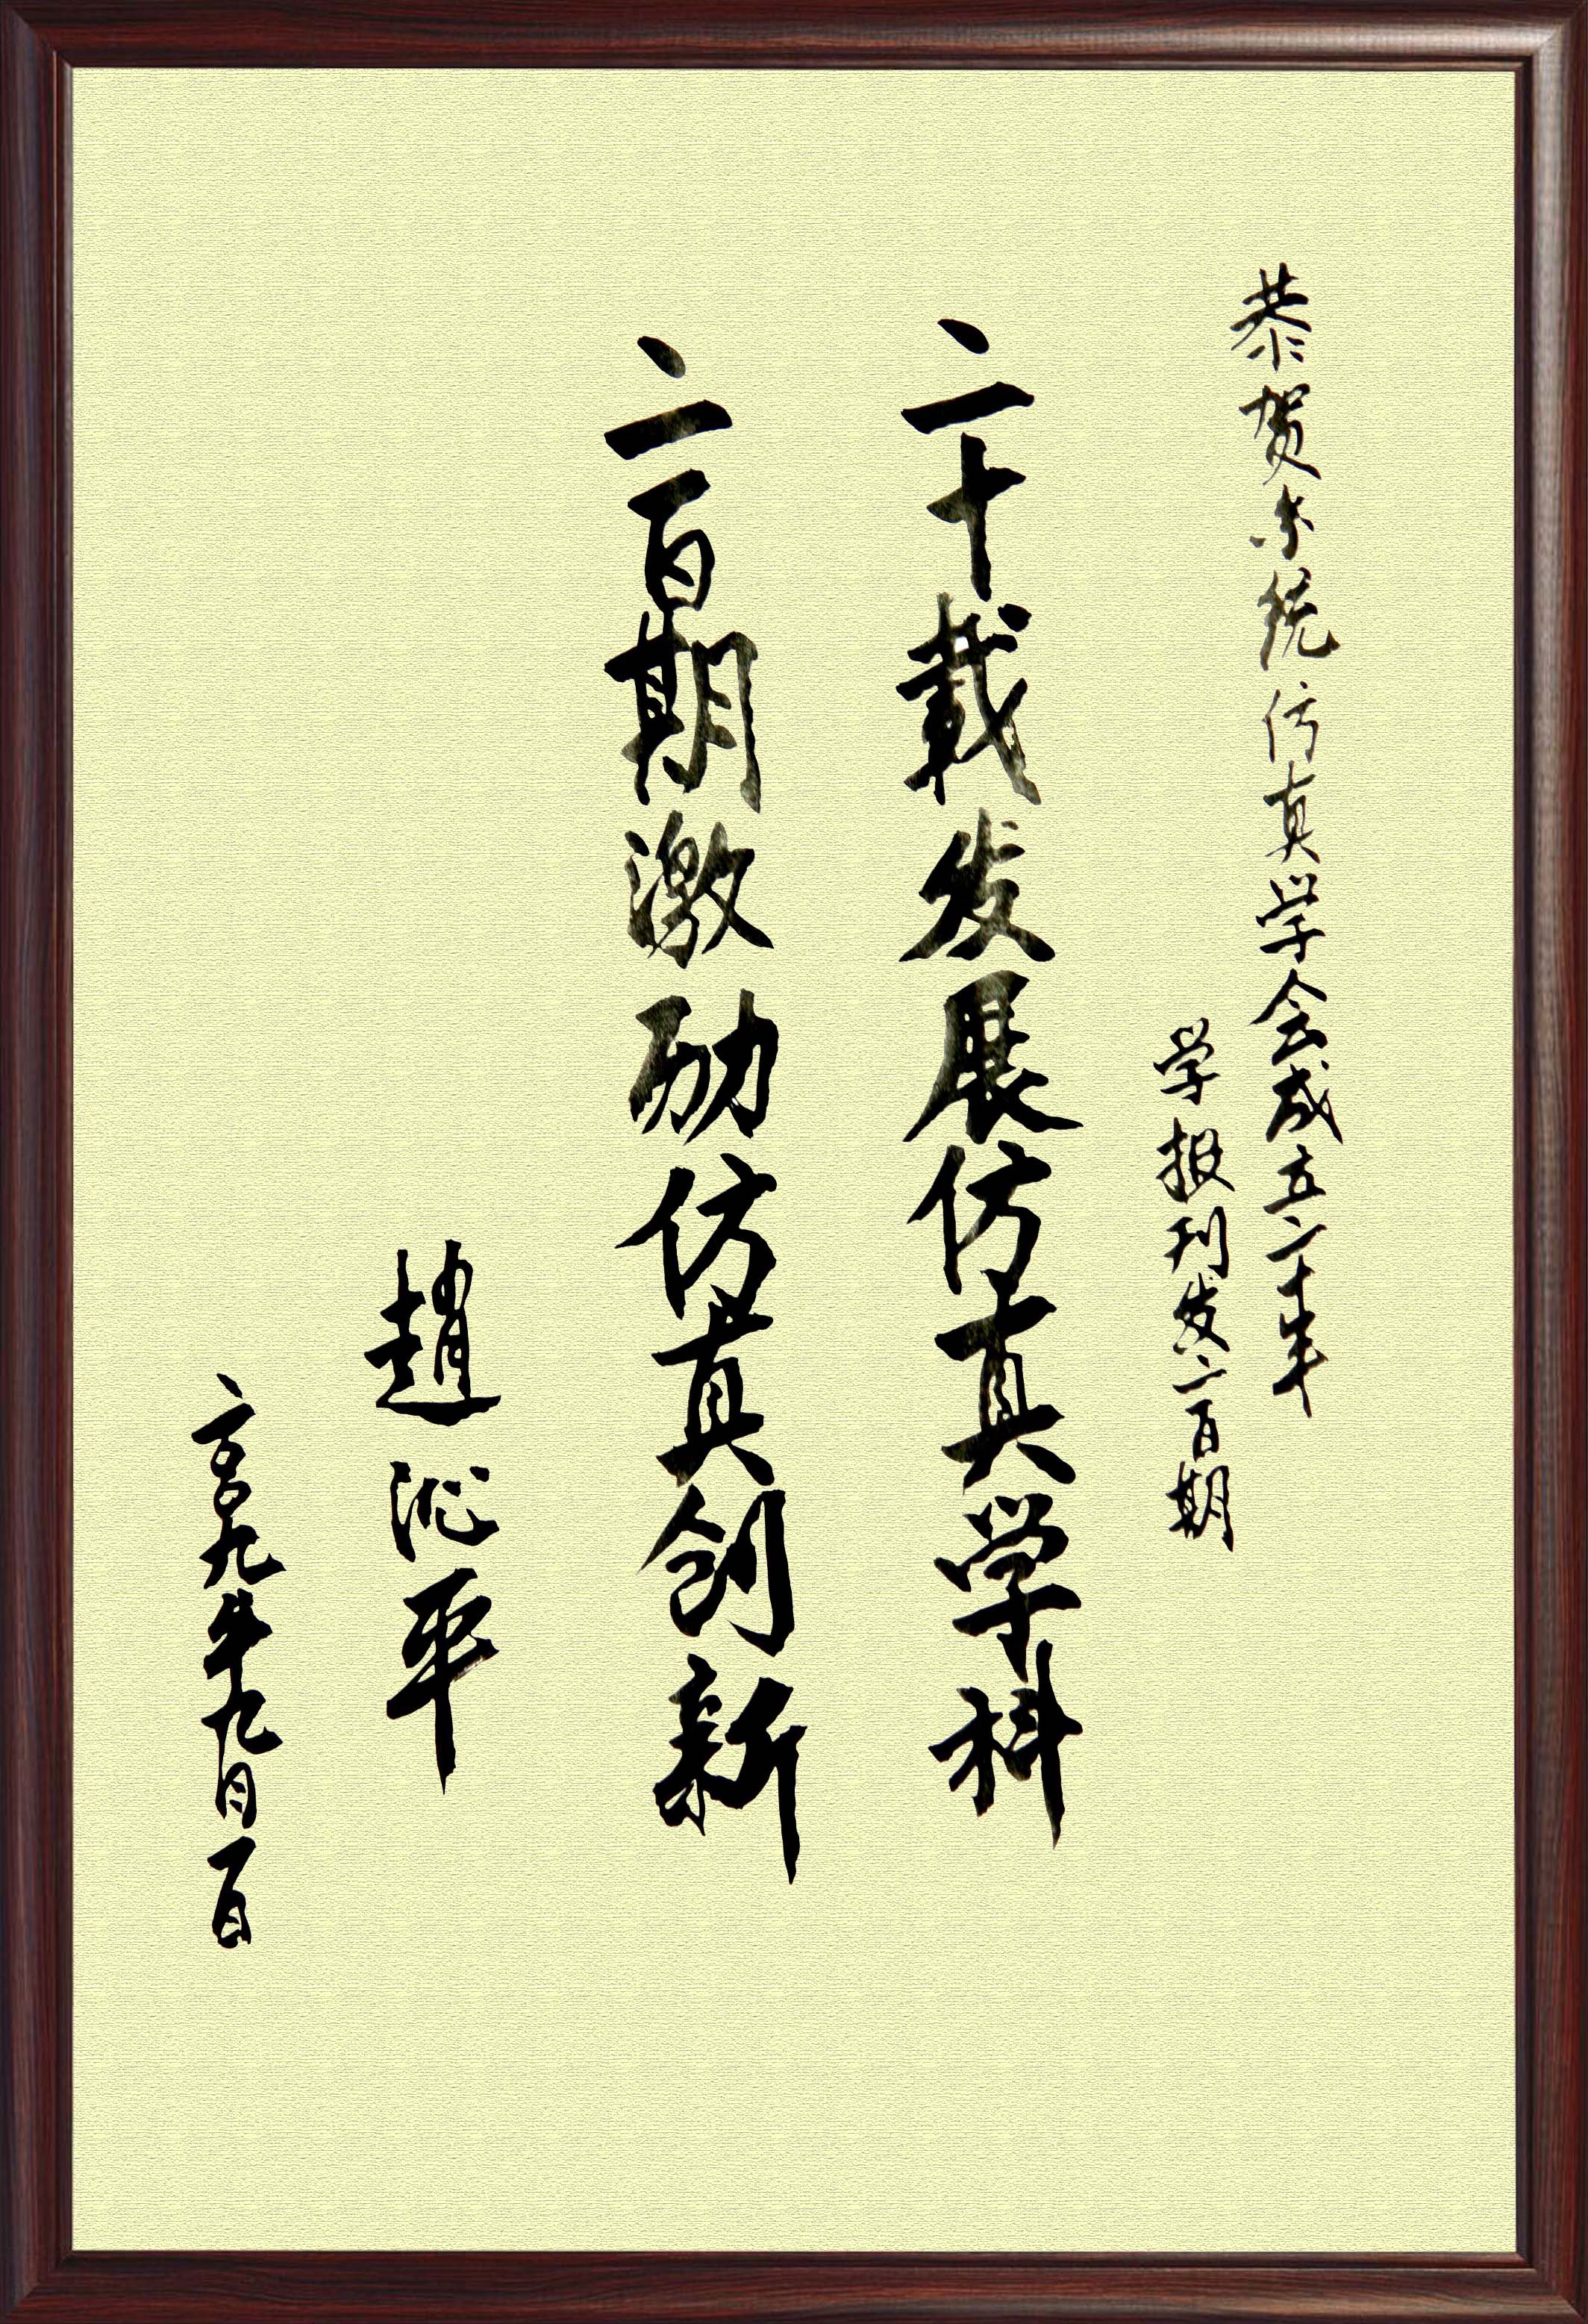 恭贺系统仿真学会成立二十年
学报刊发二百期
二十载发展仿真学科
二百期激励仿真创新
趙沁平
二〇〇九年九月一日